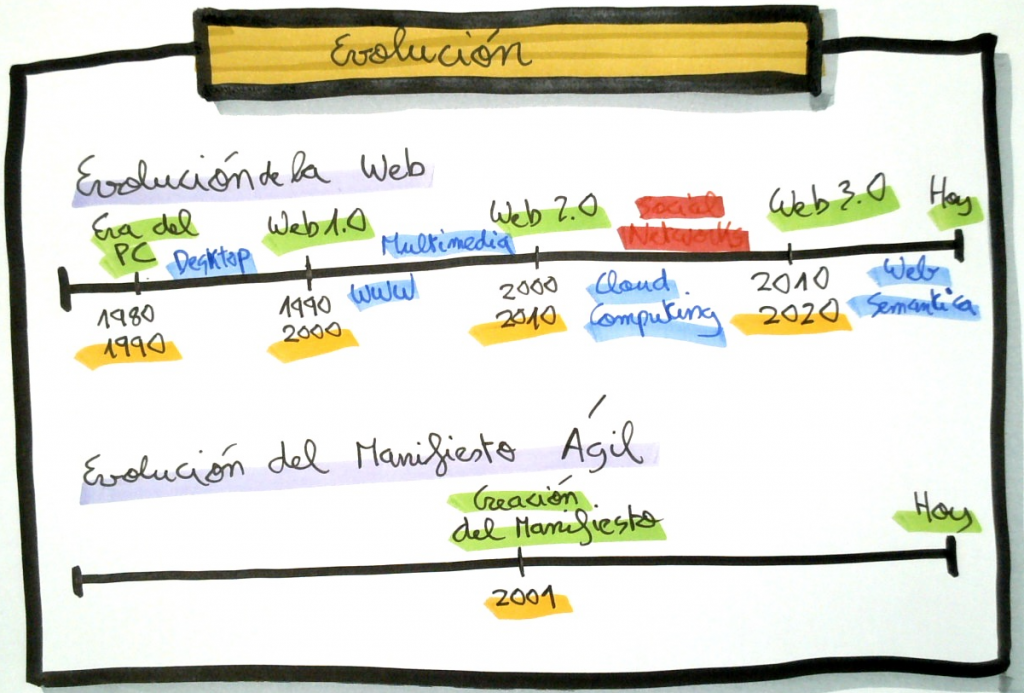 Evolución
Evolución de la Web
Era del
PC
Desktop
Web 1.0
Multimedia
Web 2.0
Social
Networks
Web 3.0
Hoy
1980
1990
1990
2000
WWW
2000
2010
Cloud
Computing
2010
2020
Web
Semantica
Evolución del Manifiesto Ágil
Creación
del Manifiesto
Hoy
2001